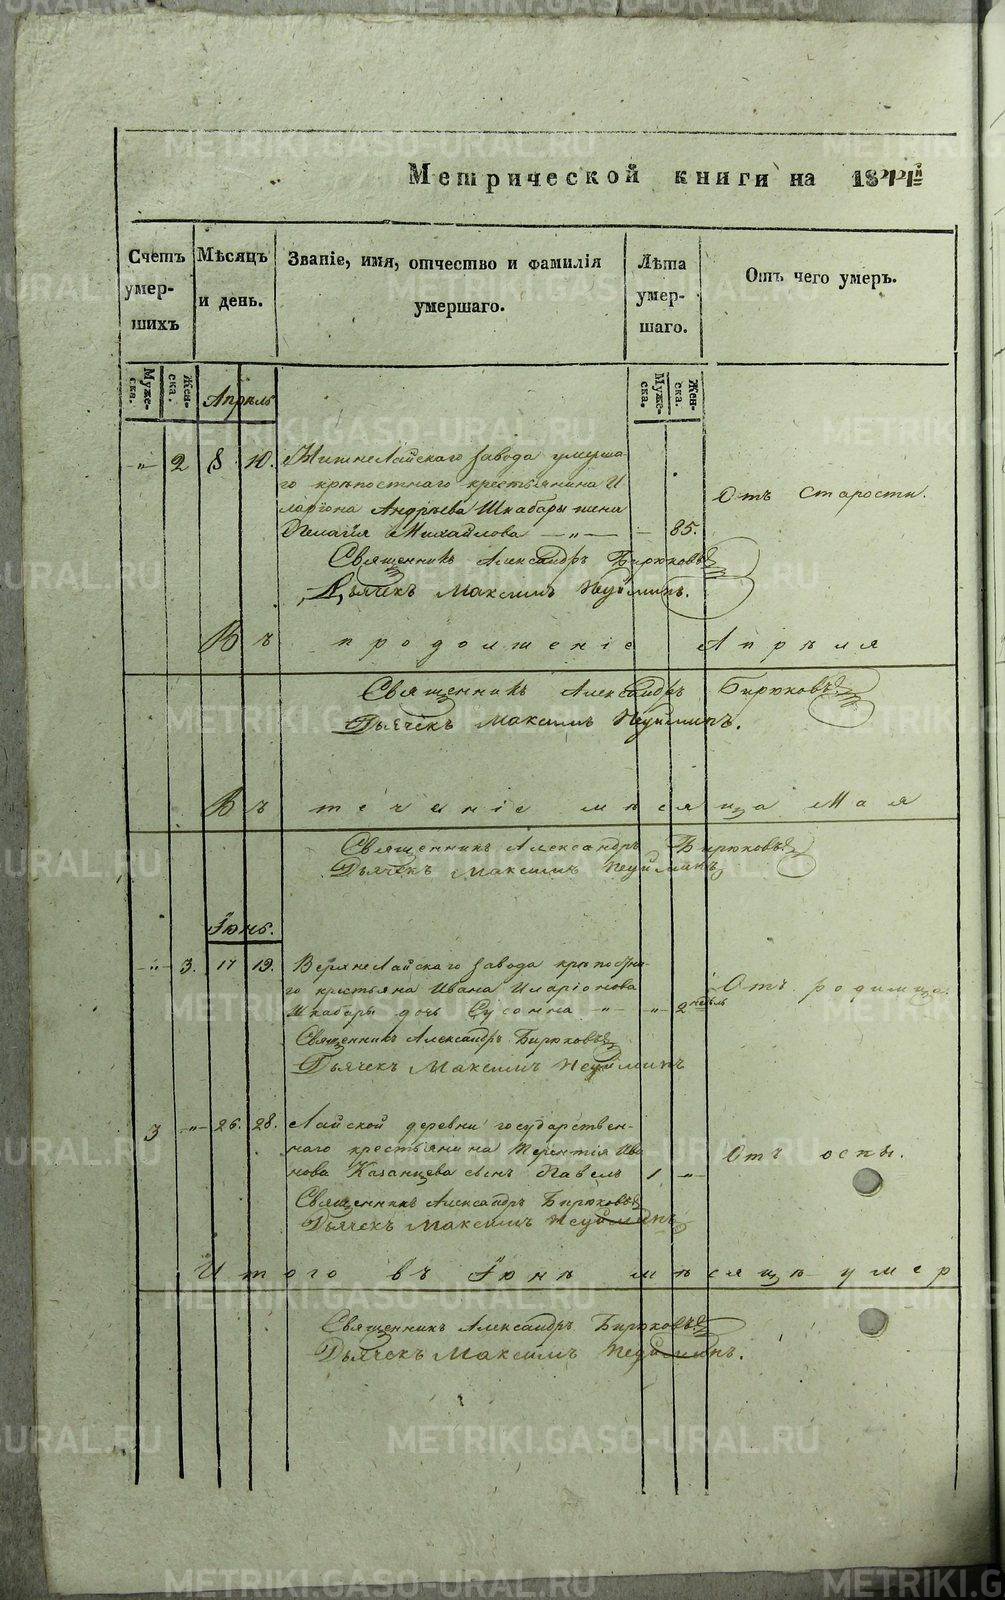 Метрической книги на 1844й
Счетъ умер-шихъ
Мѣсяцъ и день.
Званіе, имя, отчество и фамилія умершаго.
Лѣта умер-шаго.
Отъ чего умеръ.
Муже-ска.
Жен-ска.
Муже-ска.
Жен-ска.
Апрѣль
-"- 2 8 10. НижнеЛайскаго завода умерша-
го крѣпостнаго крестьянина И
ларіона Андрѣева Шкабары жена
Пелагія Михайлова -"- - 85. Отъ старости.
Священникъ Александръ Бирюковъ
Дьячекъ Максимъ Неуйминъ.
Въ продолженіе Апрѣля
Священникъ Александръ Бирюковъ
Дьячекъ Максимъ Неуйминъ.
Въ теченіе мѣсяца Мая
Священникъ Александръ Бирюковъ
Дьячекъ Максимъ Неуйминъ
Іюнь.
-"- 3. 17 19. ВерхнеЛайскаго завода крѣпостна-
го крестьяна Ивана Иларіонова
Шкабары дочь Сусанна -"- -"- 2 недѣль Отъ родимца.
Священникъ Александръ Бирюковъ
Дьячекъ Максимъ Неуйминъ
3 -"- 26. 28. Лайской деревни государствен-
наго крестьянина Терентія Ива
нова Казанцева сынъ Павелъ 1 -"- Отъ оспы.
Священникъ Александръ Бирюковъ
Дьячекъ Максимъ Неуйминъ
Итого въ Іюнѣ мѣсяцѣ умер
Священникъ Александръ Бирюковъ
Дьячекъ Максимъ Неуйминъ.
METRIKI.GASO-URAL.RU